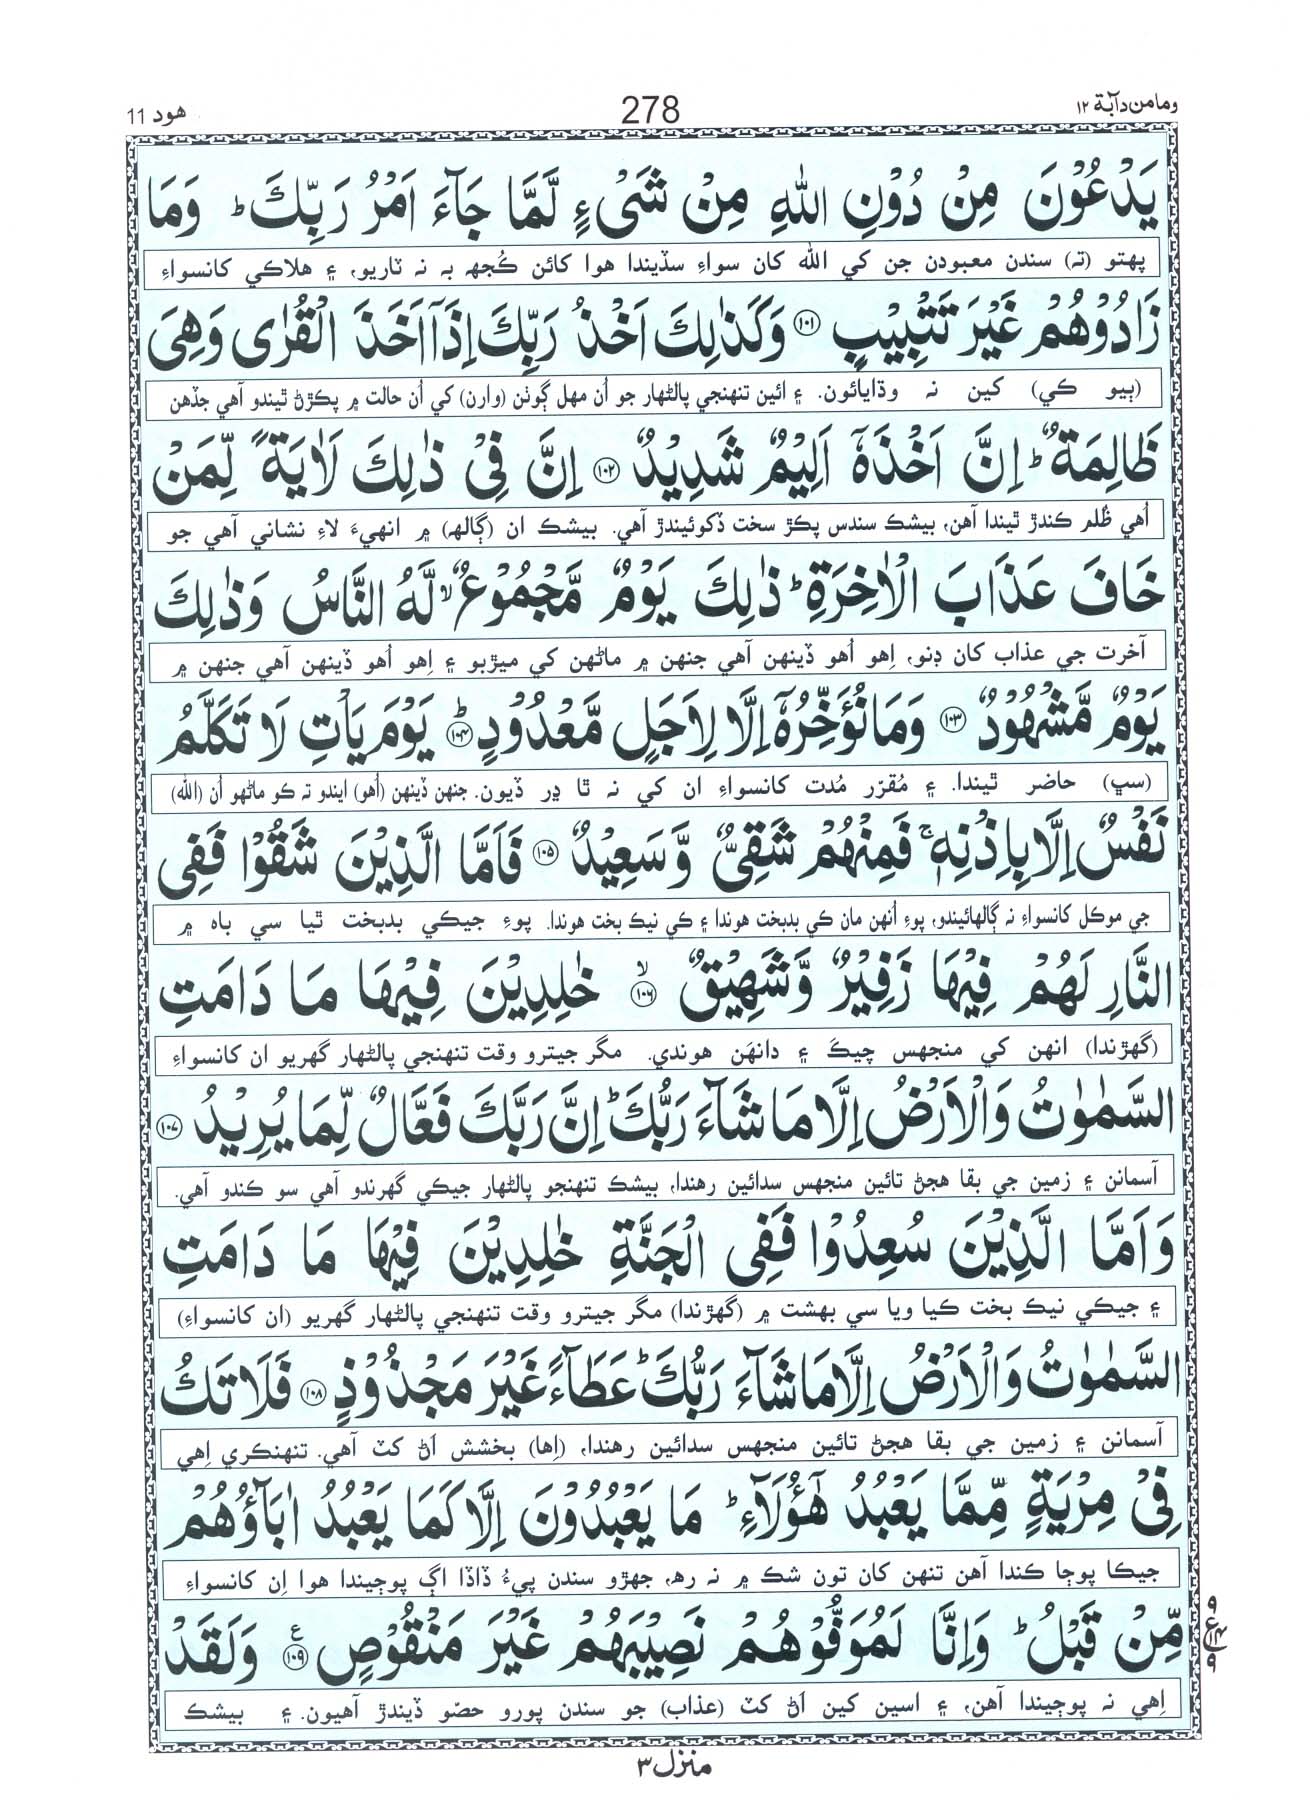 ومامن دآبة ١٢
278
هود 11
يَدْعُوْنَ مِنْ دُوْنِ اللّٰهِ مِنْ شَىْءٍ لَّمَّا جَآءَ اَمْرُ رَبِّكَ ؕ وَمَا
پهتو (تہ) سندن معبودن جن کي الله کان سواءِ سڏيندا هوا کائن ڪُجهہ بہ نہ ٽاريو، ۽ هلاڪي کانسواءِ
زَادُوْهُمْ غَيْرَ تَتْبِيْبٍ ۝١٠١ وَكَذٰلِكَ اَخْذُ رَبِّكَ اِذَاۤ اَخَذَ الْقُرٰى وَهِىَ
(ٻيو ڪي) کين نہ وڌايائون. ۽ ائين تنهنجي پالڻهار جو اُن مهل ڳوٺن (وارن) کي اُن حالت ۾ پڪڙڻ ٿيندو آهي جڏهن
ظَالِمَةٌ ؕ اِنَّ اَخْذَهٗۤ اَلِيْمٌ شَدِيْدٌ ۝١٠٢ اِنَّ فِىْ ذٰلِكَ لَاٰيَةً لِّمَنْ
اُهي ظُلم ڪندڙ ٿيندا آهن، بيشڪ سندس پڪڙ سخت ڏکوئيندڙ آهي. بيشڪ ان (ڳالهہ) ۾ انهيءَ لاءِ نشاني آهي جو
خَافَ عَذَابَ الْاٰخِرَةِ ؕ ذٰلِكَ يَوْمٌ مَّجْمُوْعٌ ۙ لَّهُ النَّاسُ وَذٰلِكَ
آخرت جي عذاب کان ڊنو، اِهو اُهو ڏينهن آهي جنهن ۾ ماڻهن کي ميڙبو ۽ اِهو اُهو ڏينهن آهي جنهن ۾
يَوْمٌ مَّشْهُوْدٌ ۝١٠٣ وَمَا نُؤَخِّرُهٗۤ اِلَّا لِاَجَلٍ مَّعْدُوْدٍ ؕ ۝١٠٤ يَوْمَ يَاْتِ لَا تَكَلَّمُ
(سڀ) حاضر ٿيندا. ۽ مُقرّر مُدت کانسواءِ ان کي نہ ٿا ڍر ڏيون. جنهن ڏينهن (اُهو) ايندو تہ ڪو ماڻهو اُن (الله)
نَفْسٌ اِلَّا بِاِذْنِهٖ ۚ فَمِنْهُمْ شَقِىٌّ وَّسَعِيْدٌ ۝١٠٥ فَاَمَّا الَّذِيْنَ شَقُوْا فَفِى
جي موڪل کانسواءِ نہ ڳالهائيندو، پوءِ اُنهن مان ڪي بدبخت هوندا ۽ ڪي نيڪ بخت هوندا. پوءِ جيڪي بدبخت ٿيا سي باہ ۾
النَّارِ لَهُمْ فِيْهَا زَفِيْرٌ وَّشَهِيْقٌ ۙ ۝١٠٦ خٰلِدِيْنَ فِيْهَا مَا دَامَتِ
(گهڙندا) انهن کي منجهس چيڪَ ۽ دانهَن هوندي. مگر جيترو وقت تنهنجي پالڻهار گهريو ان کانسواءِ
السَّمٰوٰتُ وَالْاَرْضُ اِلَّا مَا شَآءَ رَبُّكَ ؕ اِنَّ رَبَّكَ فَعَّالٌ لِّمَا يُرِيْدُ ۝١٠٧
آسمانن ۽ زمين جي بقا هجڻ تائين منجهس سدائين رهندا، بيشڪ تنهنجو پالڻهار جيڪي گهرندو آهي سو ڪندو آهي.
وَاَمَّا الَّذِيْنَ سُعِدُوْا فَفِى الْجَنَّةِ خٰلِدِيْنَ فِيْهَا مَا دَامَتِ
۽ جيڪي نيڪ بخت ڪيا ويا سي بهشت ۾ (گهڙندا) مگر جيترو وقت تنهنجي پالڻهار گهريو (ان کانسواءِ)
السَّمٰوٰتُ وَالْاَرْضُ اِلَّا مَا شَآءَ رَبُّكَ ؕ عَطَآءً غَيْرَ مَجْذُوْذٍ ۝١٠٨ فَلَا تَكُ
آسمانن ۽ زمين جي بقا هجڻ تائين منجهس سدائين رهندا، (اِها) بخشش اَڻ کٽ آهي. تنهنڪري اِهي
فِىْ مِرْيَةٍ مِّمَّا يَعْبُدُ هٰۤؤُلَآءِ ؕ مَا يَعْبُدُوْنَ اِلَّا كَمَا يَعْبُدُ اٰبَآؤُهُمْ
جيڪا پوڄا ڪندا آهن تنهن کان تون شڪ ۾ نہ رهہ، جهڙو سندن پيءُ ڏاڏا اڳ پوڄيندا هوا اِن کانسواءِ
مِّنْ قَبْلُ ؕ وَاِنَّا لَمُوَفُّوْهُمْ نَصِيْبَهُمْ غَيْرَ مَنْقُوْصٍ ۝١٠٩ ع وَلَقَدْ
٩ ع ١٤ ٩
اِهي نہ پوڄيندا آهن، ۽ اسين کين اَڻ کٽ (عذاب) جو سندن پورو حصّو ڏيندڙ آهيون. ۽ بيشڪ
منزل ٣